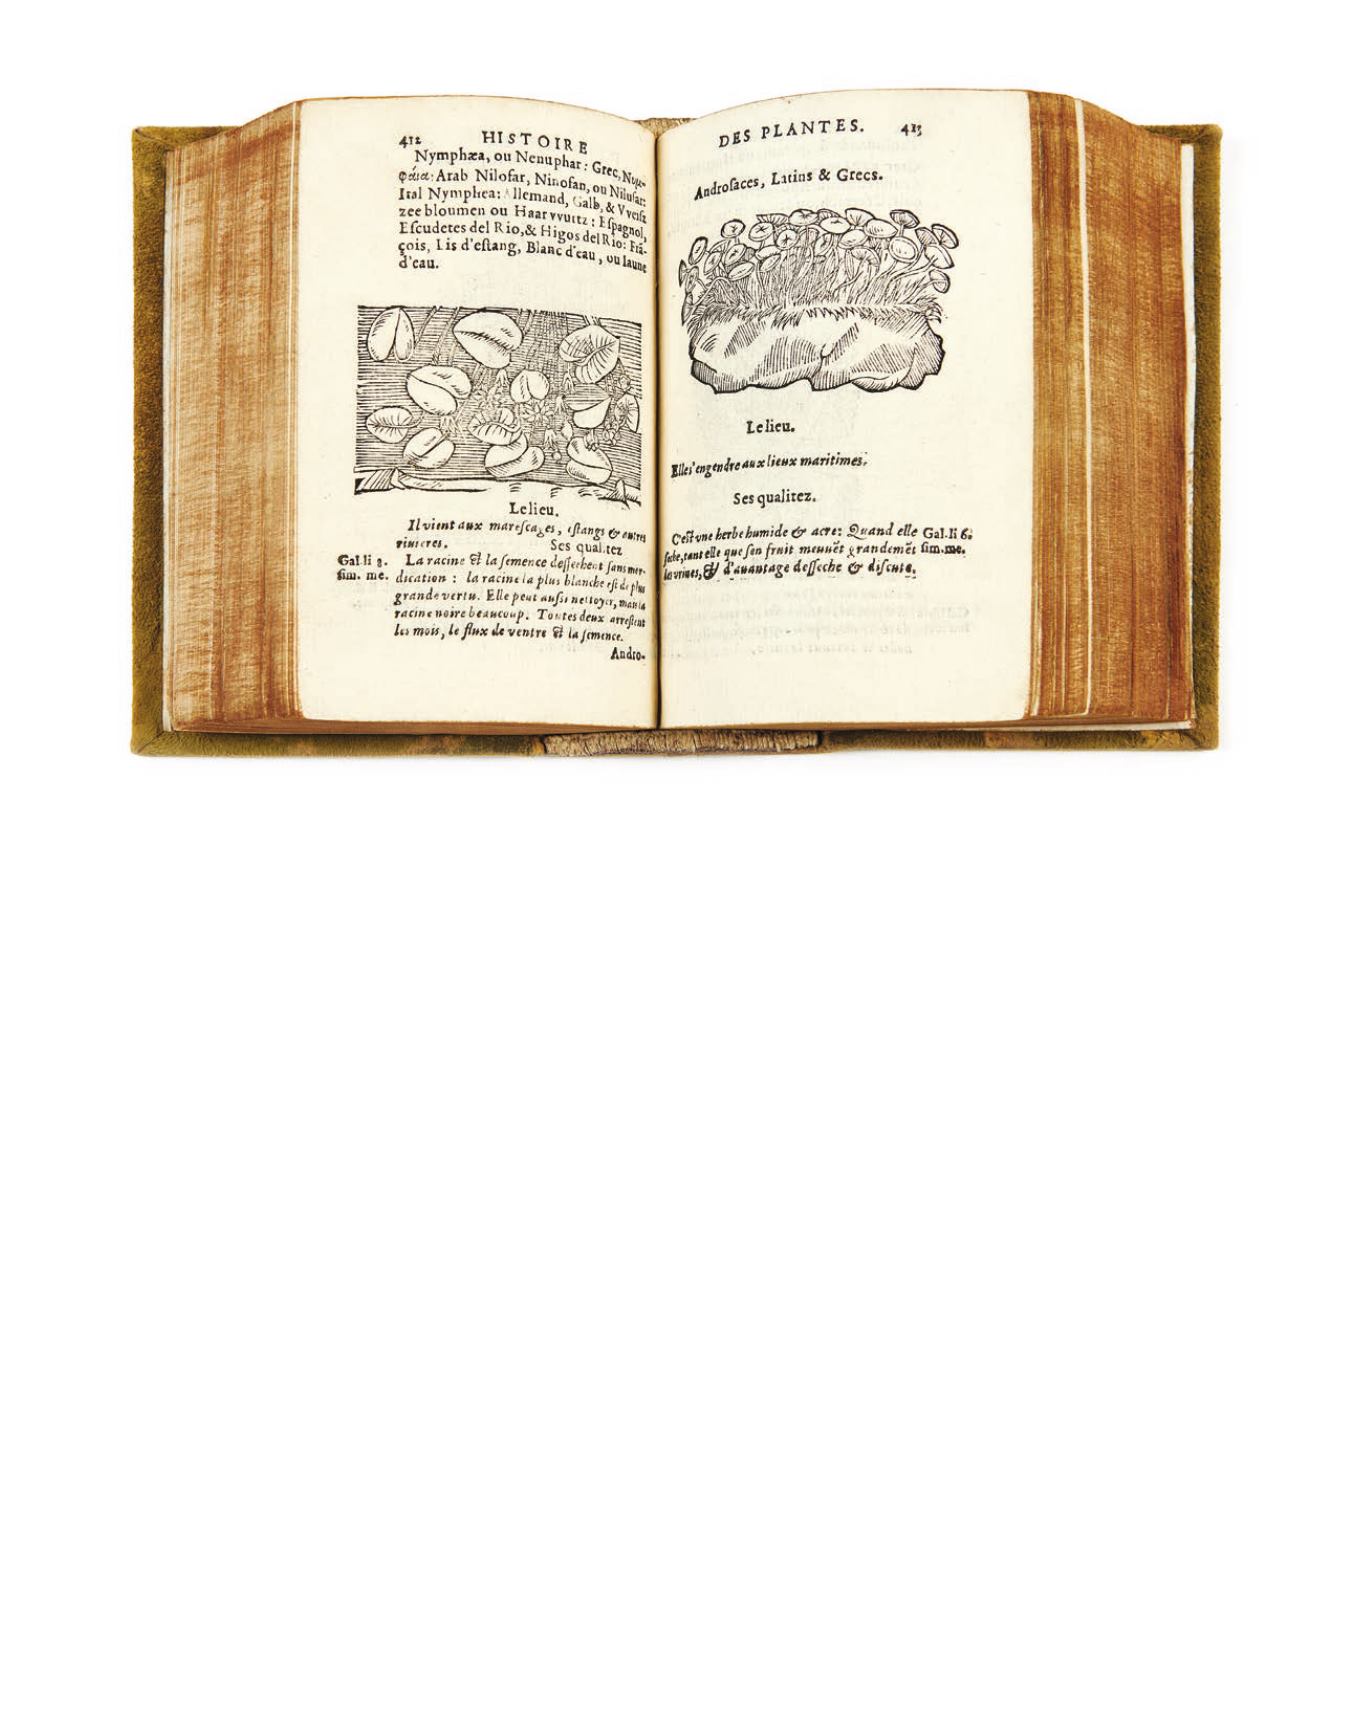 412 HISTOIRE
Nymphæa, ou Nenuphar : Grec, Νυμ-
φαία: Arab Nilofar, Ninofan, ou Nilufar:
Ital Nymphea: Allemand, Galb, & Vveisz
zee bloumen ou Haarvvurtz : Eſpagnol,
Eſcudetes del Rio, & Higos del Rio: Frã-
çois, Lis d'eſtang, Blanc d'eau, ou Iaune
d'eau.
Le lieu.
Il vient aux mareſcages, eſtangs & autres
riuieres. Ses qualitez
Gal. li 8. La racine & la ſemence deſſechent ſans mor-
ſim. me. dication : la racine la plus blanche eſt de plus
grande vertu. Elle peut auſsi nettoyer, mais la
racine noire beaucoup. Toutes deux arreſtent
les mois, le flux de ventre & la ſemence.
Andro-
DES PLANTES. 413
Androſaces, Latins & Grecs.
Le lieu.
Elle s'engendre aux lieux maritimes.
Ses qualitez.
C'eſt vne herbe humide & acre: Quand elle Gal. li 6.
ſeche, tant elle que ſon fruit meuuẽt grandemẽt ſim. me.
les vrines, & d'auantage deſſeche & diſcute.